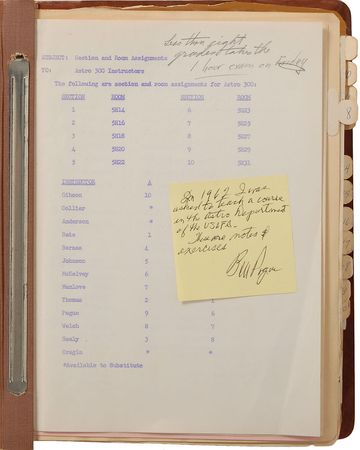 Less than eight
graders takes the
1 hour exam on Friday
SUBJECT: Section and Room Assignments
TO: Astro 300 Instructors
The following are section and room assignments for Astro 300:
SECTION ROOM SECTION ROOM
1 5H14 6 5H23
2 5H16 7 5H25
3 5H18 8 5H27
4 5H20 9 5H29
5 5H22 10 5H31
INSTRUCTOR A
Gibson 10
Collier *
Anderson *
Bate 1
Barnes 4
Johnson 5
McKelvey 6
Hanlove 7
Thomas 2 1
Pague 9 6
Welch 8 7
Healy 3 8
Cragin * *
*Available to Substitute
In 1962 I was
asked to teach a course
in the Astro Department
of the USAFA.
These are notes &
exercises
Bill Pogue